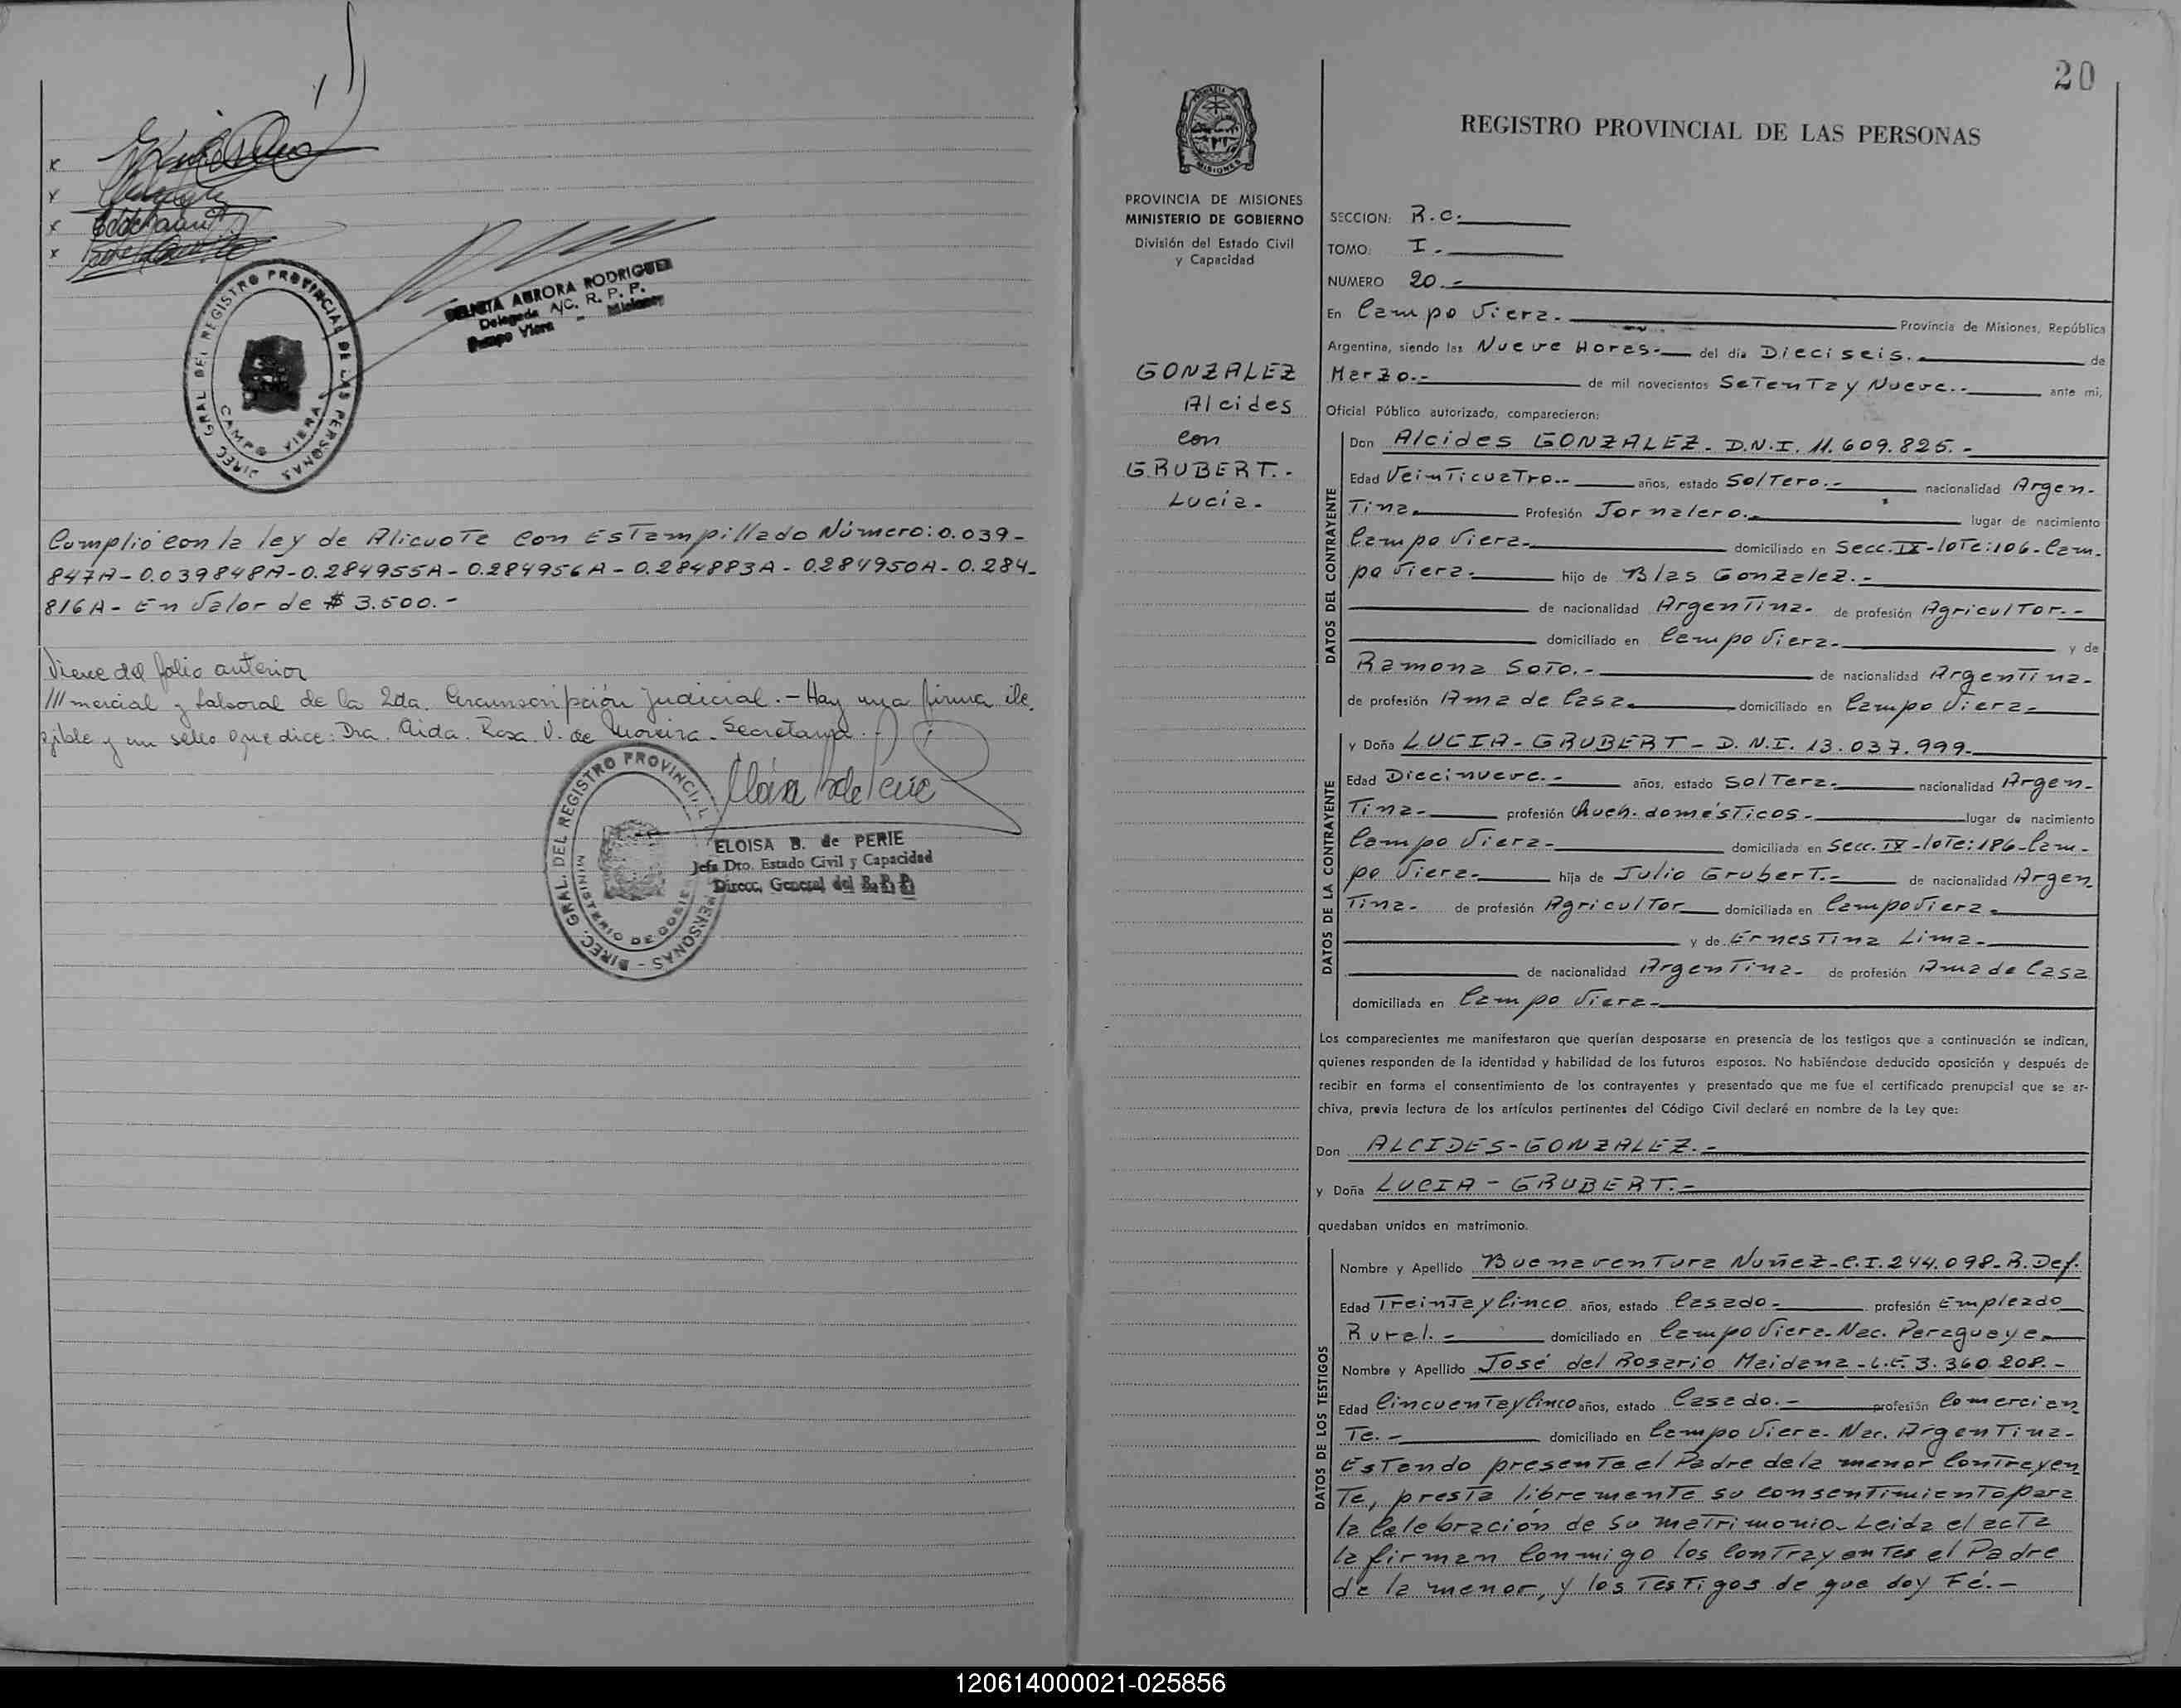 DELICIA AURORA RODRIGUEZ
Delegada A/C. R. P. P.
Campo Viera - Misiones
DIREC. GRAL DEL REGISTRO PROVINCIAL DE LAS PERSONAS
CAMPO VIERA
Cumplió con la ley de Alicuota con Estampillado Número: 0.039-
847A - 0.039848A - 0.284955A - 0.284956A - 0.284883A - 0.284950A - 0.284-
816A - En Valor de $ 3.500.-
Viene del folio anterior
///mercial y Laboral de la 2da. Circunscripción Judicial. - Hay una firma ile
gible y un sello que dice: Dra. Aida Rosa V. de Moreira - Secretaria -
DIREC. GRAL. DEL REGISTRO PROVINCIAL PERSONAS
ELOISA B. de PERIE
Jefa Dto. Estado Civil y Capacidad
Direcc. General del R. P. P.
20
MISIONES
PROVINCIA DE MISIONES
MINISTERIO DE GOBIERNO
División del Estado Civil
y Capacidad
GONZALEZ
Alcides
con
GRUBERT.-
Lucia.-
REGISTRO PROVINCIAL DE LAS PERSONAS
SECCION: R.C.
TOMO: I.-
NUMERO 20.-
En Campo Viera.- Provincia de Misiones, República
Argentina, siendo las Nueve Horas.- del día Dieciseis.- de
Marzo.- de mil novecientos Setenta y Nueve.- ante mi,
Oficial Público autorizado, comparecieron:
DATOS DEL CONTRAYENTE
Don Alcides GONZALEZ.- D.N.I. 11.609.825.-
Edad Veinticuatro.- años, estado Soltero.- nacionalidad Argen-
tina. Profesión Jornalero.- lugar de nacimiento
Campo Viera.- domiciliado en Secc. IX - lote: 106 - Cam-
po Viera.- hijo de Blas Gonzalez.-
de nacionalidad Argentina.- de profesión Agricultor.-
domiciliado en Campo Viera.- y de
Ramona Soto.- de nacionalidad Argentina-
de profesión Ama de Casa. domiciliado en Campo Viera-
DATOS DE LA CONTRAYENTE
y Doña LUCIA - GRUBERT - D.N.I. 13.037.999.-
Edad Diecinueve.- años, estado Soltera.- nacionalidad Argen-
tina- profesión Queh. domésticos- lugar de nacimiento
Campo Viera- domiciliada en Secc. IX - lote: 186 - Cam-
po Viera- hija de Julio Grubert.- de nacionalidad Argen
tina- de profesión Agricultor domiciliada en Campo Viera-
y de Ernestina Lima-
de nacionalidad Argentina- de profesión Ama de Casa
domiciliada en Campo Viera-
Los comparecientes me manifestaron que querían desposarse en presencia de los testigos que a continuación se indican,
quienes responden de la identidad y habilidad de los futuros esposos. No habiéndose deducido oposición y después de
recibir en forma el consentimiento de los contrayentes y presentado que me fue el certificado prenupcial que se ar-
chiva, previa lectura de los artículos pertinentes del Código Civil declaré en nombre de la Ley que:
Don ALCIDES - GONZALEZ.-
y Doña LUCIA - GRUBERT.-
quedaban unidos en matrimonio.
DATOS DE LOS TESTIGOS
Nombre y Apellido Buenaventura Nuñez - C.I. 244.098 - R. Def.
Edad Treinta y Cinco años, estado Casado- profesión Empleado
Rural.- domiciliado en Campo Viera - Nac. Paraguaya-
Nombre y Apellido José del Rosario Maidana - L.E. 3.360.208.-
Edad Cincuenta y Cinco años, estado Casado.- profesión Comercian
te.- domiciliado en Campo Viera - Nac. Argentina-
Estando presente el Padre de la menor Contrayen
te, presta libremente su consentimiento para
la Celebración de su matrimonio - Leida el acta
la firman Conmigo los Contrayentes el Padre
de la menor, y los Testigos de que doy Fé.-
120614000021-025856